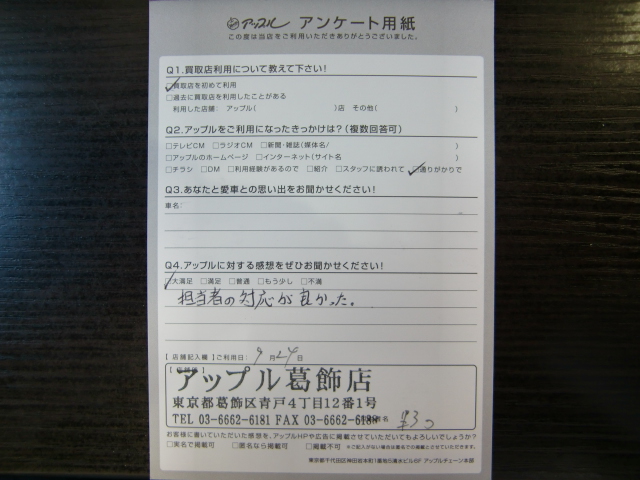 アップル アンケート用紙
この度は当店をご利用いただきありがとうございました。
Q1.買取店利用について教えて下さい!
☑買取店を初めて利用
□過去に買取店を利用したことがある
利用した店舗: アップル( )店 その他( )
Q2.アップルをご利用になったきっかけは?(複数回答可)
□テレビCM □ラジオCM □新聞・雑誌(媒体名/ )
□アップルのホームページ □インターネット(サイト名 )
□チラシ □DM □利用経験があるので □紹介 □スタッフに誘われて ☑通りがかりで
Q3.あなたと愛車との思い出をお聞かせください!
車名:
Q4.アップルに対する感想をぜひお聞かせください!
☑大満足 □満足 □普通 □もう少し □不満
担当者の対応が良かった。
【店舗記入欄】ご利用日: 9月24日
アップル葛飾店
東京都葛飾区青戸4丁目12番1号
TEL 03-6662-6181 FAX 03-6662-6188
お客様に書いていただいた感想を、アップルHPや広告に掲載させていただいてもよろしいでしょうか?
□実名で掲載可 □匿名なら掲載可 □掲載不可 ※ご記入がない場合は匿名での掲載とさせていただきます。
東京都千代田区神田岩本町1番地5清水ビル6F アップルチェーン本部